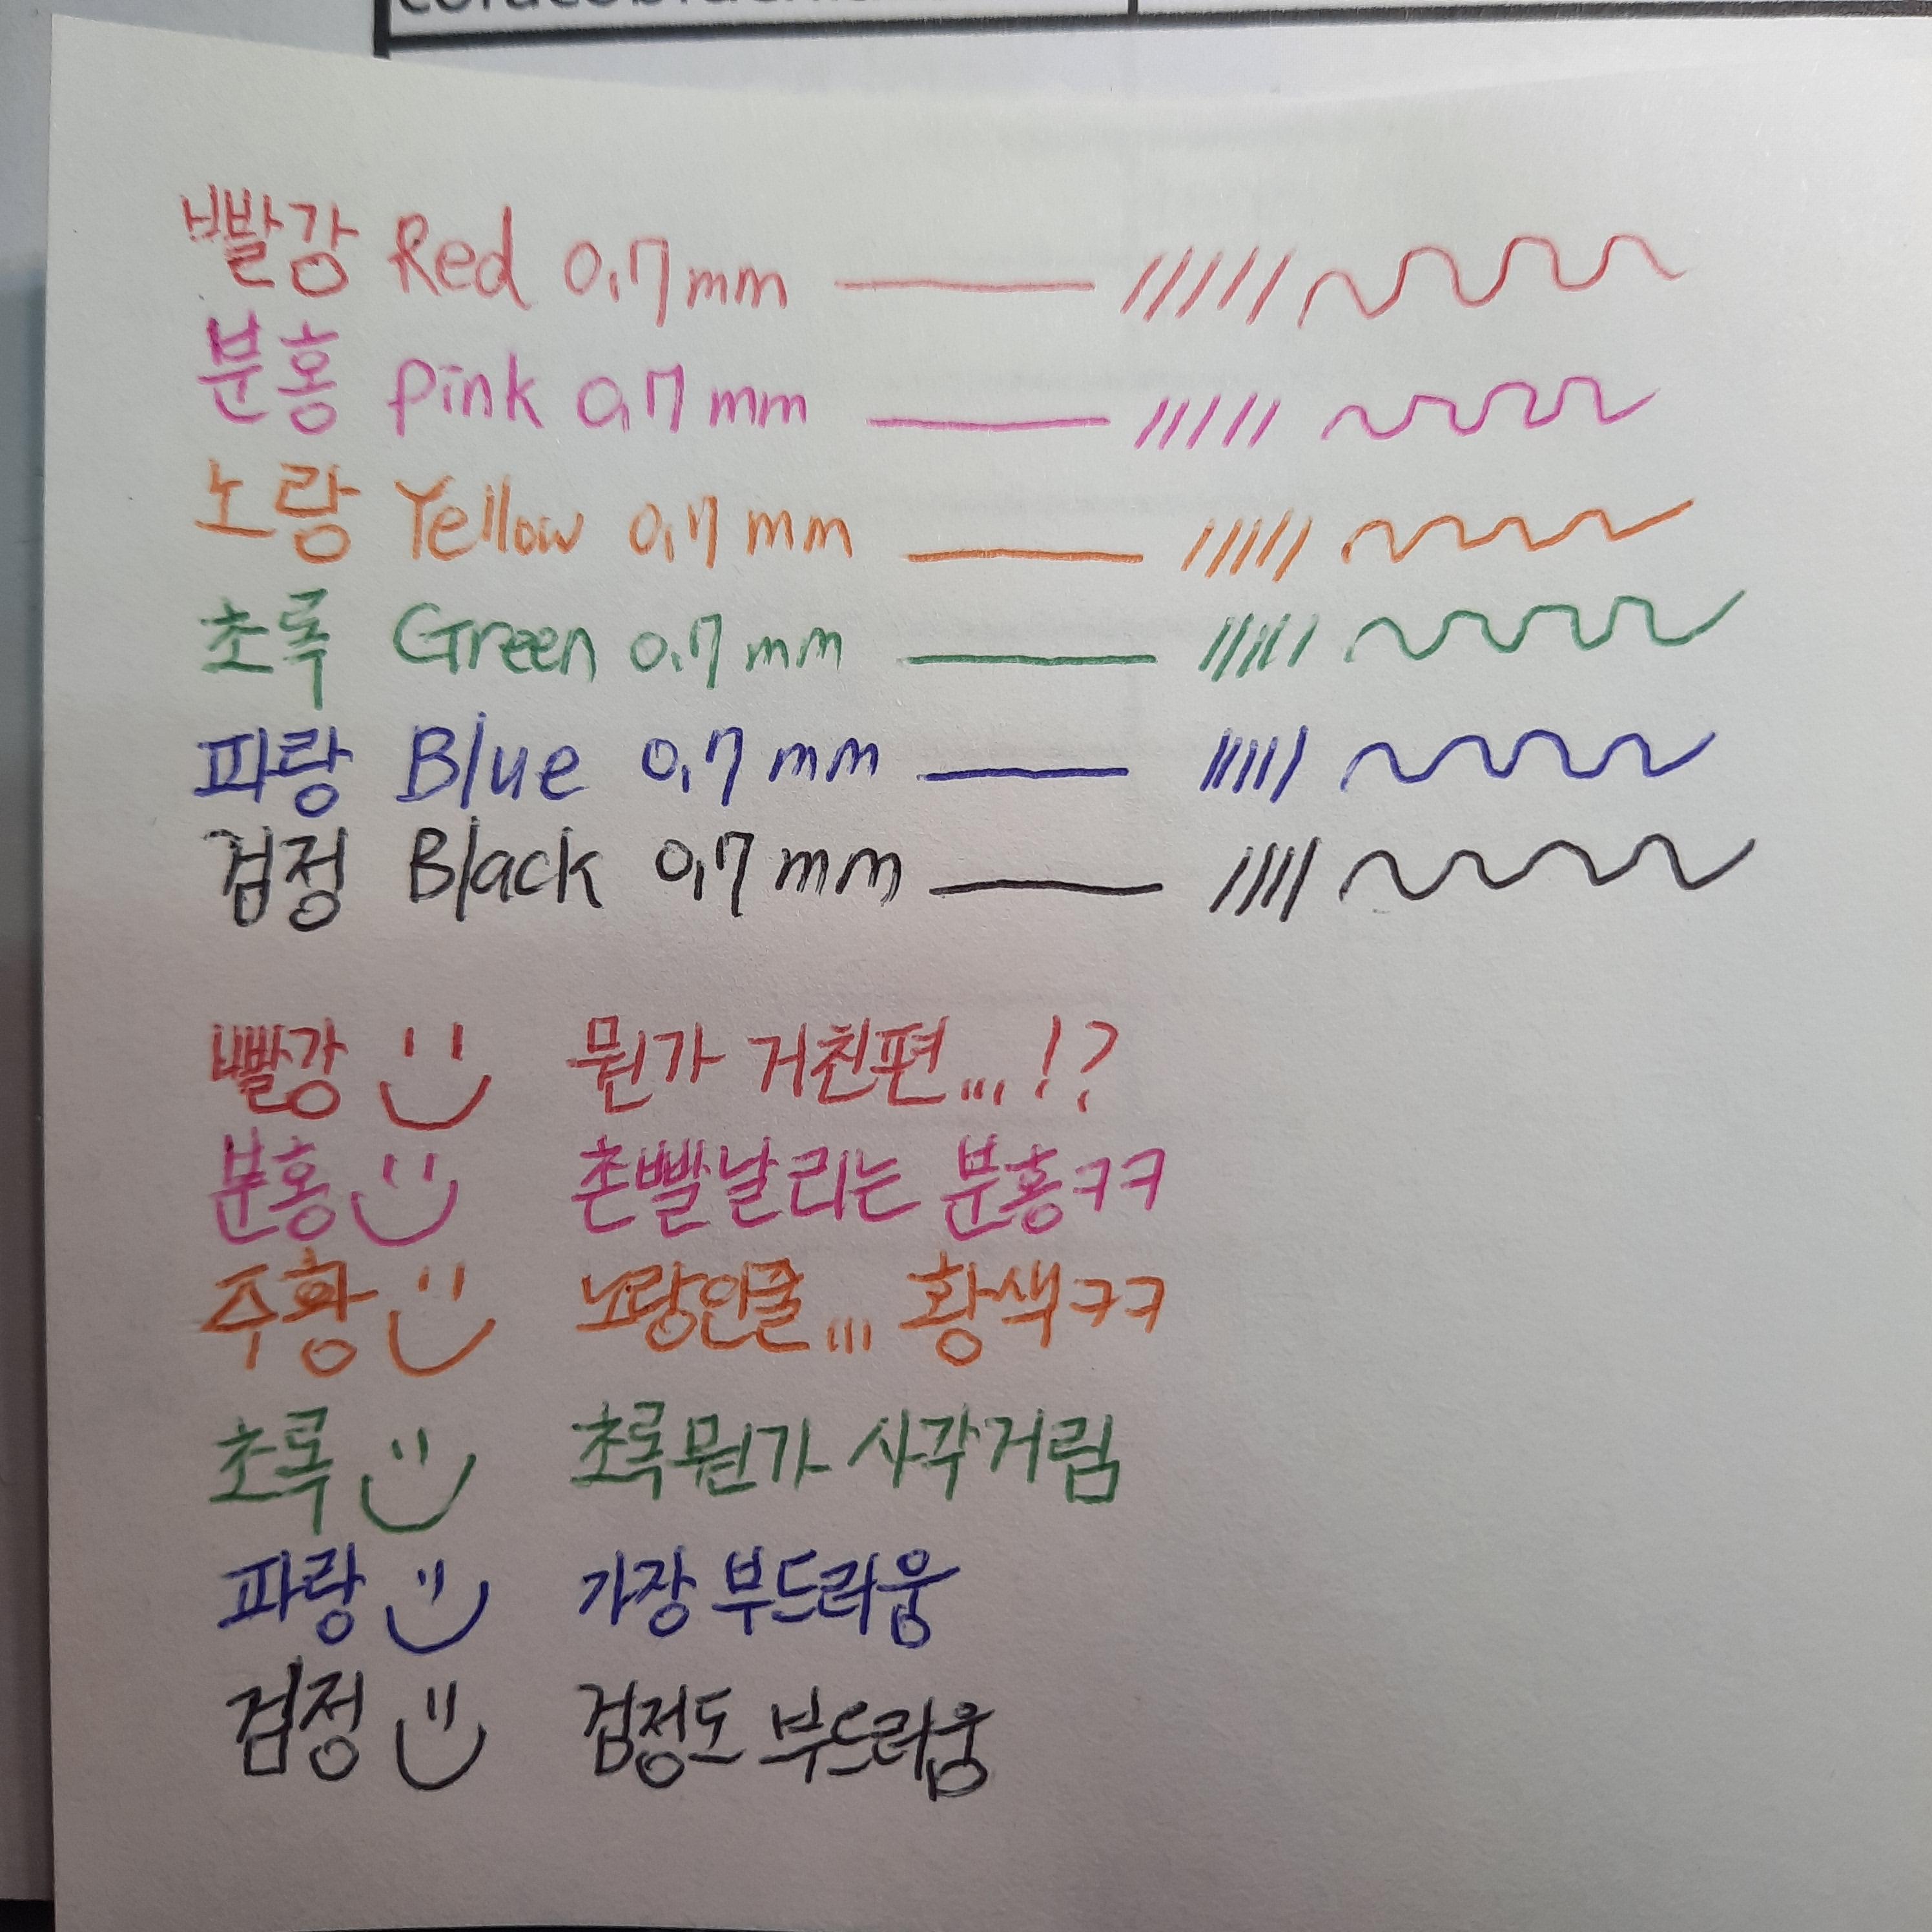 빨강 Red 0.7mm
분홍 pink 0.7mm
노랑 Yellow 0.7mm
초록 Green 0.7mm
파랑 Blue 0.7mm
검정 Black 0.7mm
빨강 뭔가 거친편...!?
분홍 촌빨날리는 분홍ㅋㅋ
주황 노랑인줄... 황색ㅋㅋ
초록 초록뭔가 사각거림
파랑 가장 부드러움
검정 검정도 부드러움